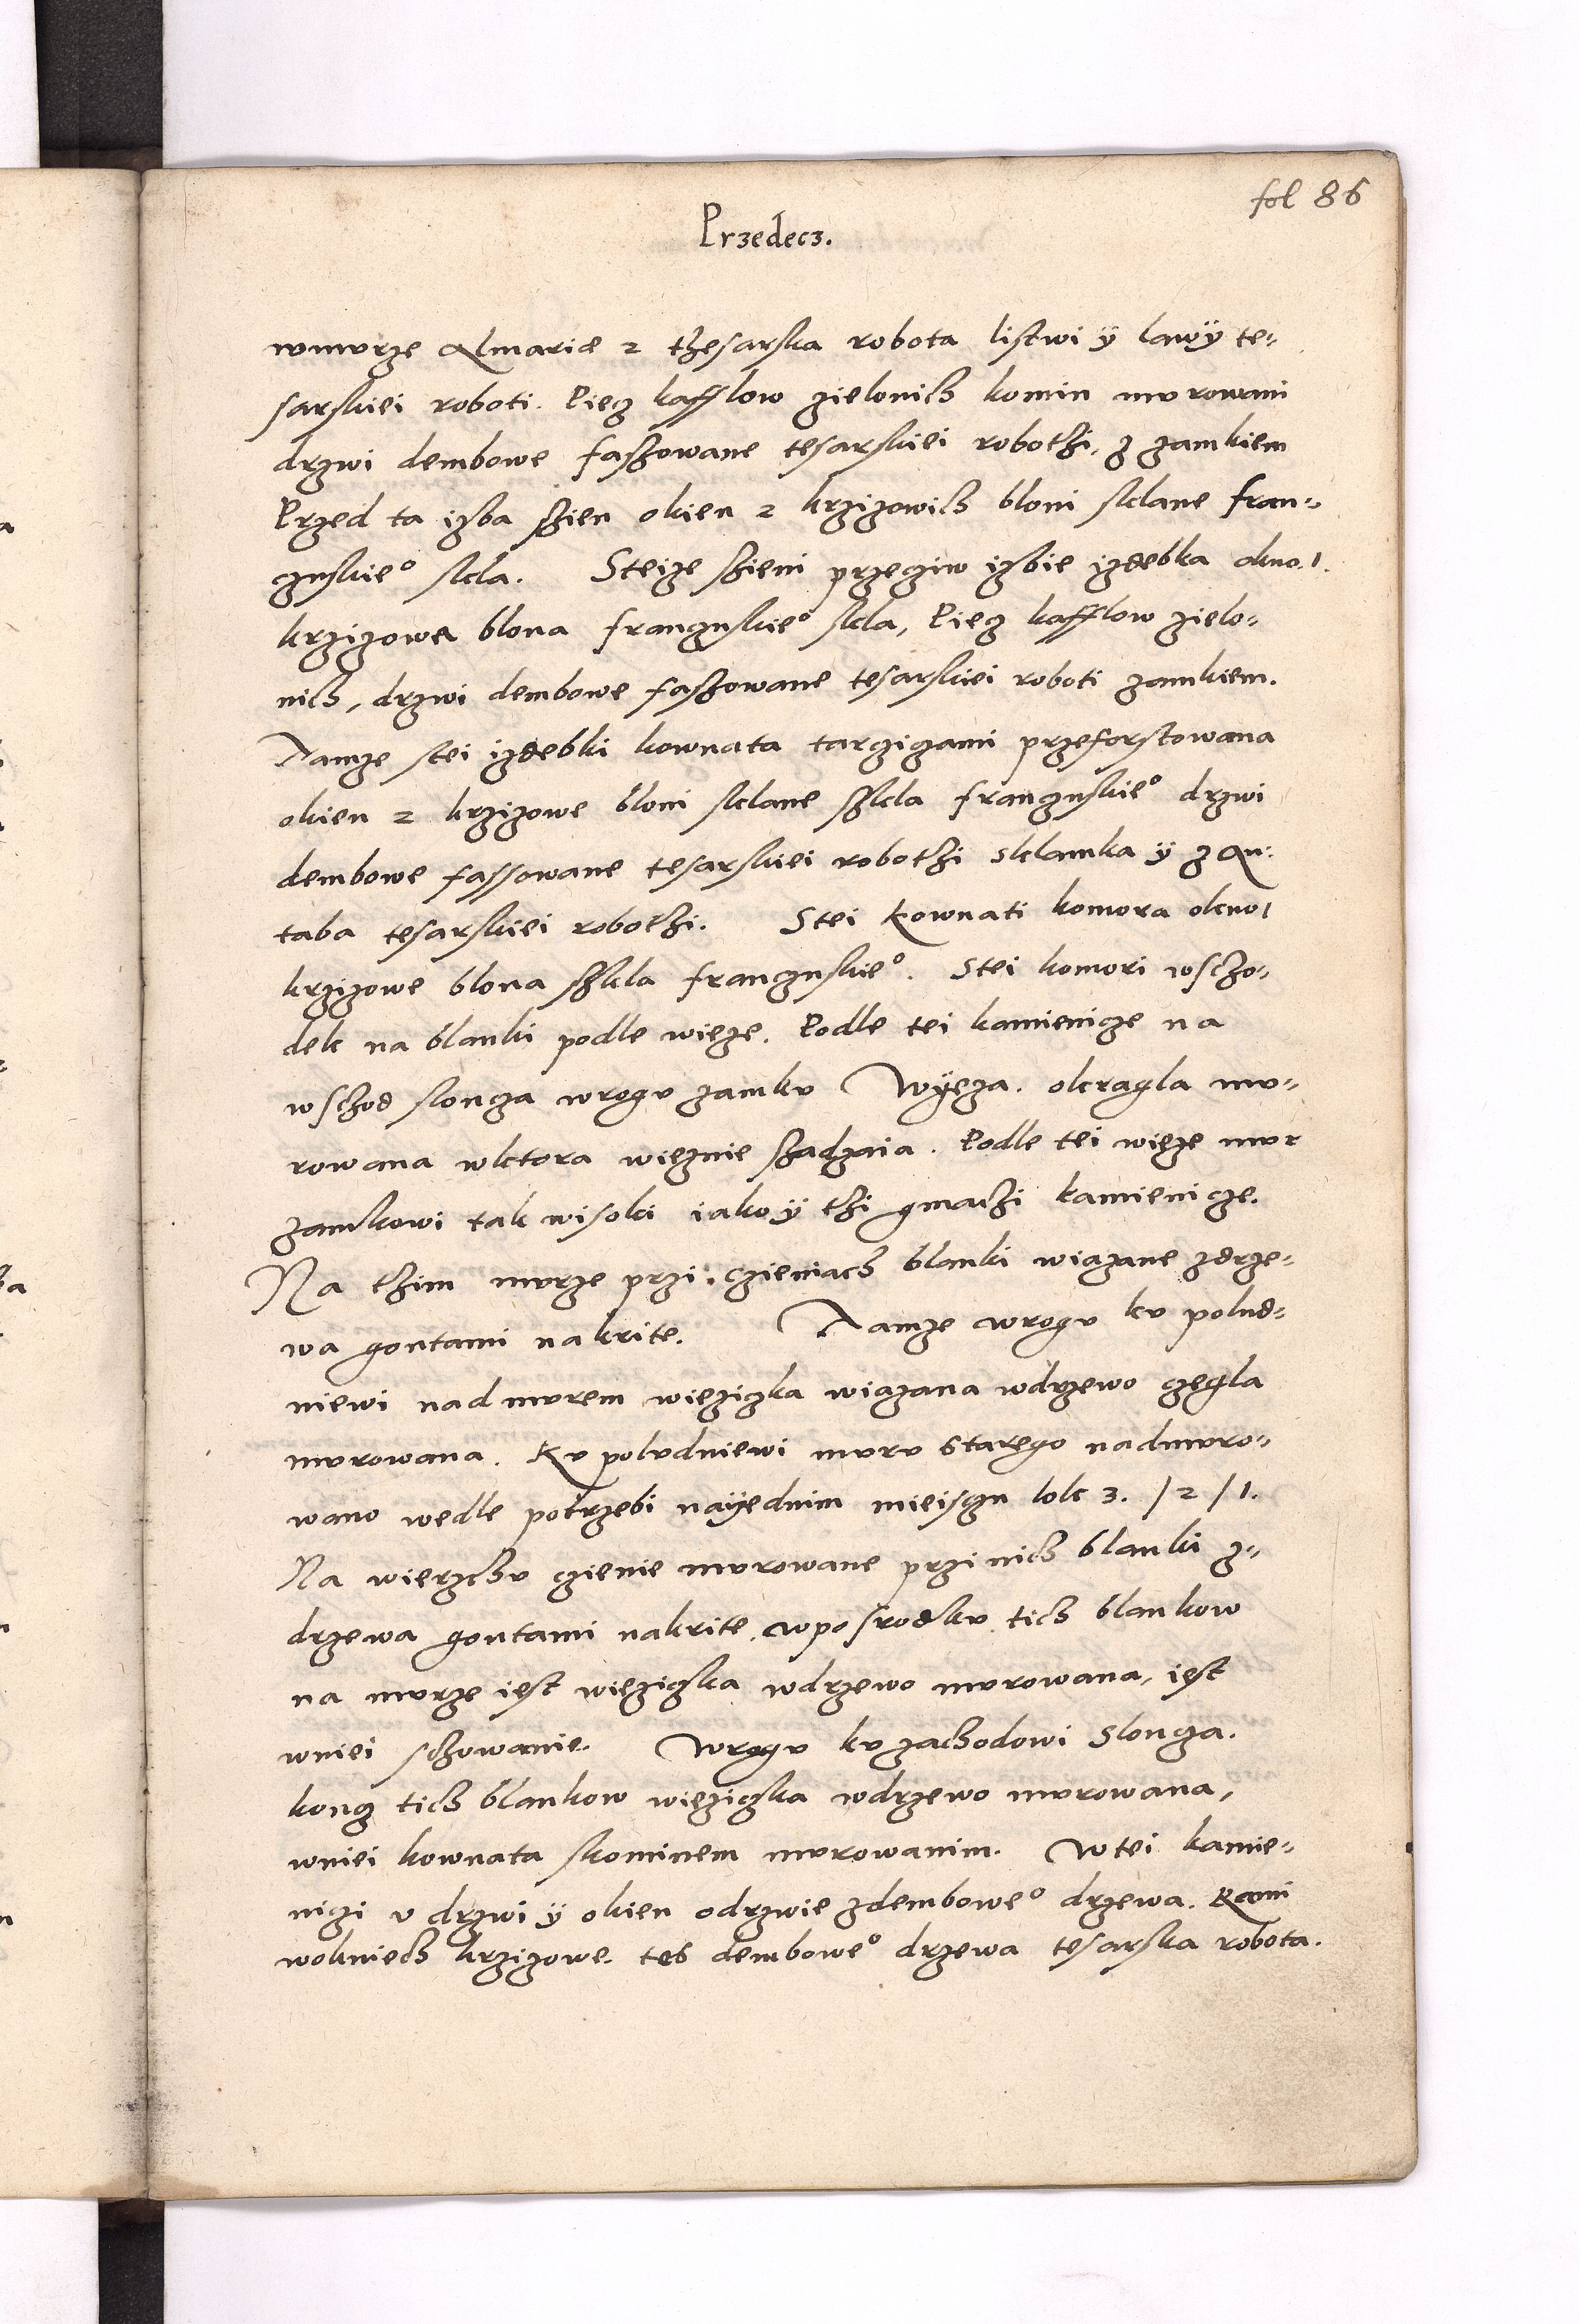 fol 86
Przedecz.
wmvrze Almariæ 2 thesarska robota listwi ÿ lawÿ te-
sarskiei roboti. Piecz kafflow zielonich komin mvrowani
drzwi dembowe faszowane tesarskiei robothi, z zamkiem
Przed ta izba szien okien 2 krzizowich bloni sklane fran-
czuskie° skla. Steize szieni przecziw izbie izdebka okno.1.
krzizowe blona franczuskie° skla, Piecz kafflow zielo-
nich, drzwi dembowe faszowane tesarskiei roboti zamkiem.
Tamze stei izdebki kownata tarczicami przeforstowana
okien 2 krzizowe bloni sklane szkla franczuskie° drzwi
dembowe fassowane tesarskiei robothi sklamka ÿ z An-
taba tesarskiei robothi. Stei kownati komora okno1
krzizowe blona szkla franczuskie°. Stei komori wscho-
dek na blanki podle wieze. Podle tei kamienicze na
wschod sloncza wrogv zamkv Wÿeza. okragla mv-
rowana wktora wieznie szadzaia. Podle tei wieze mvr
zamkowi tak wisoki iakoÿ thi gmachi kamienicze.
Na thim mvrze przi czieniach blanki wiazane zdrze-
wa gontami nakrite. Tamze wrogv kv polud-
niewi nad mvrem wieziczka wiazana wdrzewo czegla
mvrowana. Kv polvdniewi mvrv starego nadmvro-
wano wedle potrzebi naÿednim mieisczu lok 3. / 2 / 1.
Na wierzchv czienie mvrowane przi nich blanki z-
drzewa gontami nakrite, wposrodkv tich blankow
na mvrze iest wieziczka wdrzewo mvrowana, iest
wniei schowanie. Wrogv kv zachodowi Sloncza.
koncz tich blankow wieziczka wdrzewo mvrowana,
wniei kownata skominem mvrowanim. W tei kamie-
niczi v drzwi ÿ okien odrzwie zdembowe° drzewa. Rami
wokniech krzizowe. tes dembowe° drzewa tesarska robota.